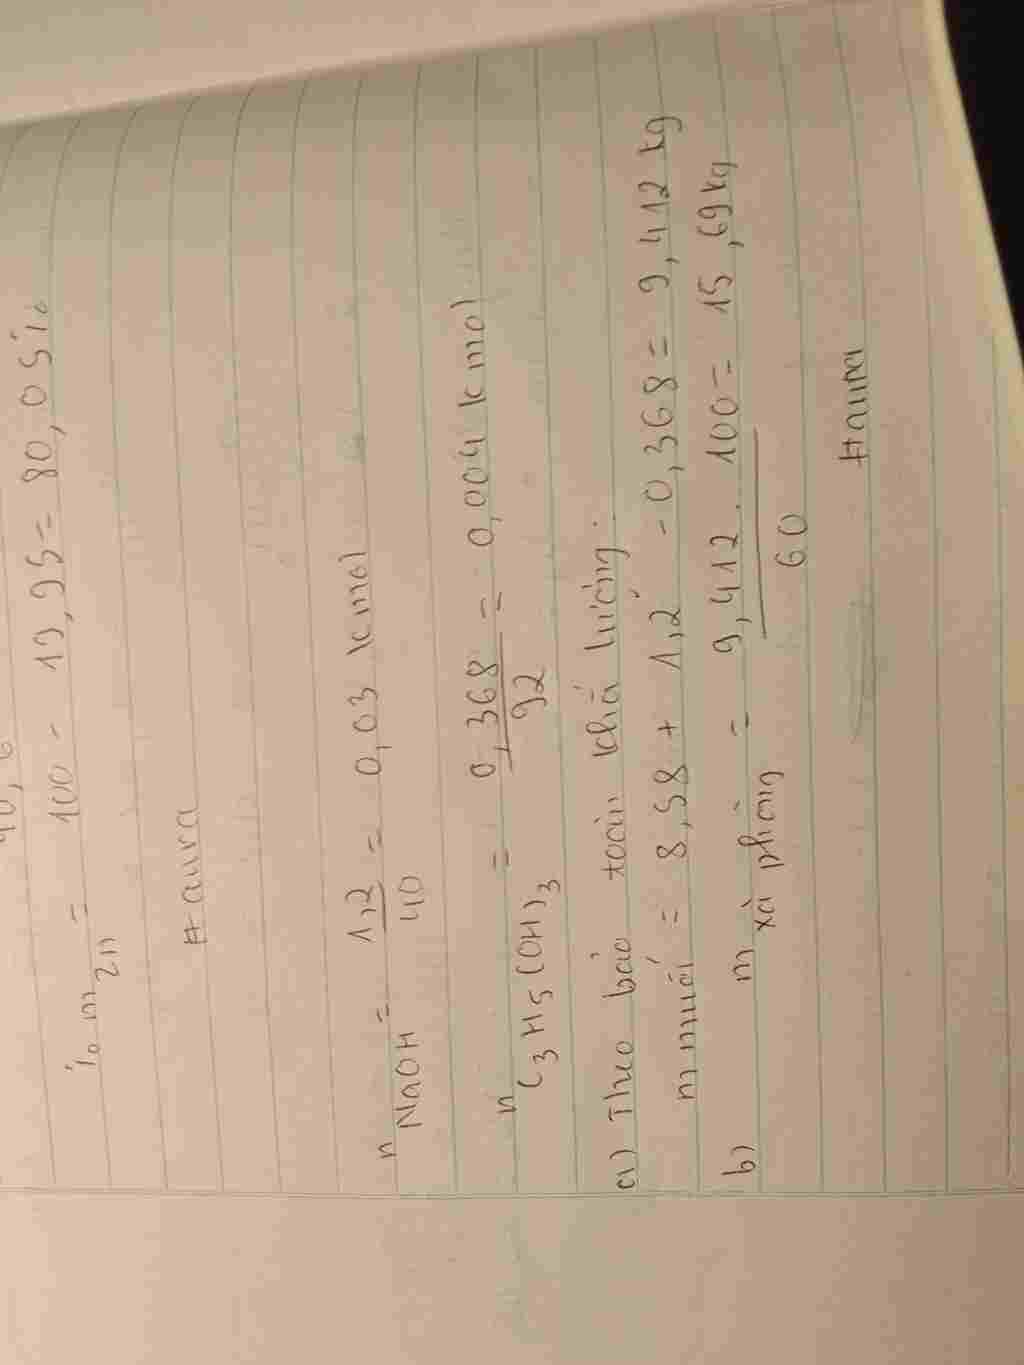 % m Zn = 100 - 19,95 = 80,05%
# aura
n NaOH = 1,2 / 40 = 0,03 kmol
n C3H5(OH)3 = 0,368 / 92 = 0,004 kmol
a) Theo bảo toàn khối lượng:
m muối = 8,58 + 1,2 - 0,368 = 9,412 kg
b) m xà phòng = 9,412 . 100 / 60 = 15,69 kg
# aura